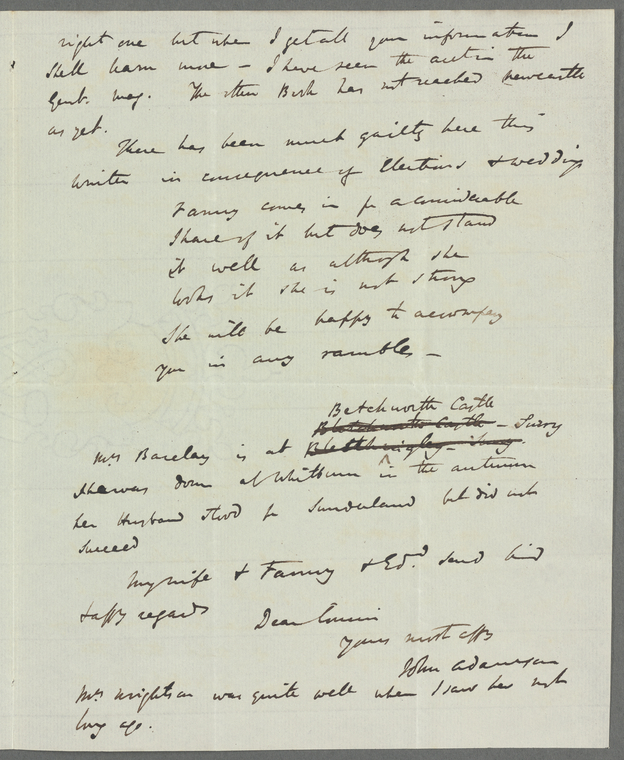 right one but when I get all your information I
shall learn more – I have seen the acct in the
Gent. Mag. The other Book has not reached Newcastle
as yet.
There has been much gaiety here this
winter in consequence of Elections & weddings
Fanny comes in for a considerable
share of it but does not stand
it well as although she
looks it she is not strong
She will be happy to accompany
you in any rambles –
Betchworth Castle
Bletchworth Castle – Surry
Mrs Barclay is at Bletchingley – Surry
she was down at Whitburn in the autumn
her Husband stood for Sunderland but did not
succeed
My wife & Fanny & Edd. send kind
& affte regards
Dear Cousin
Yours most affy
John Adamson
Mrs Wrightson was quite well when I saw her not
long ago.